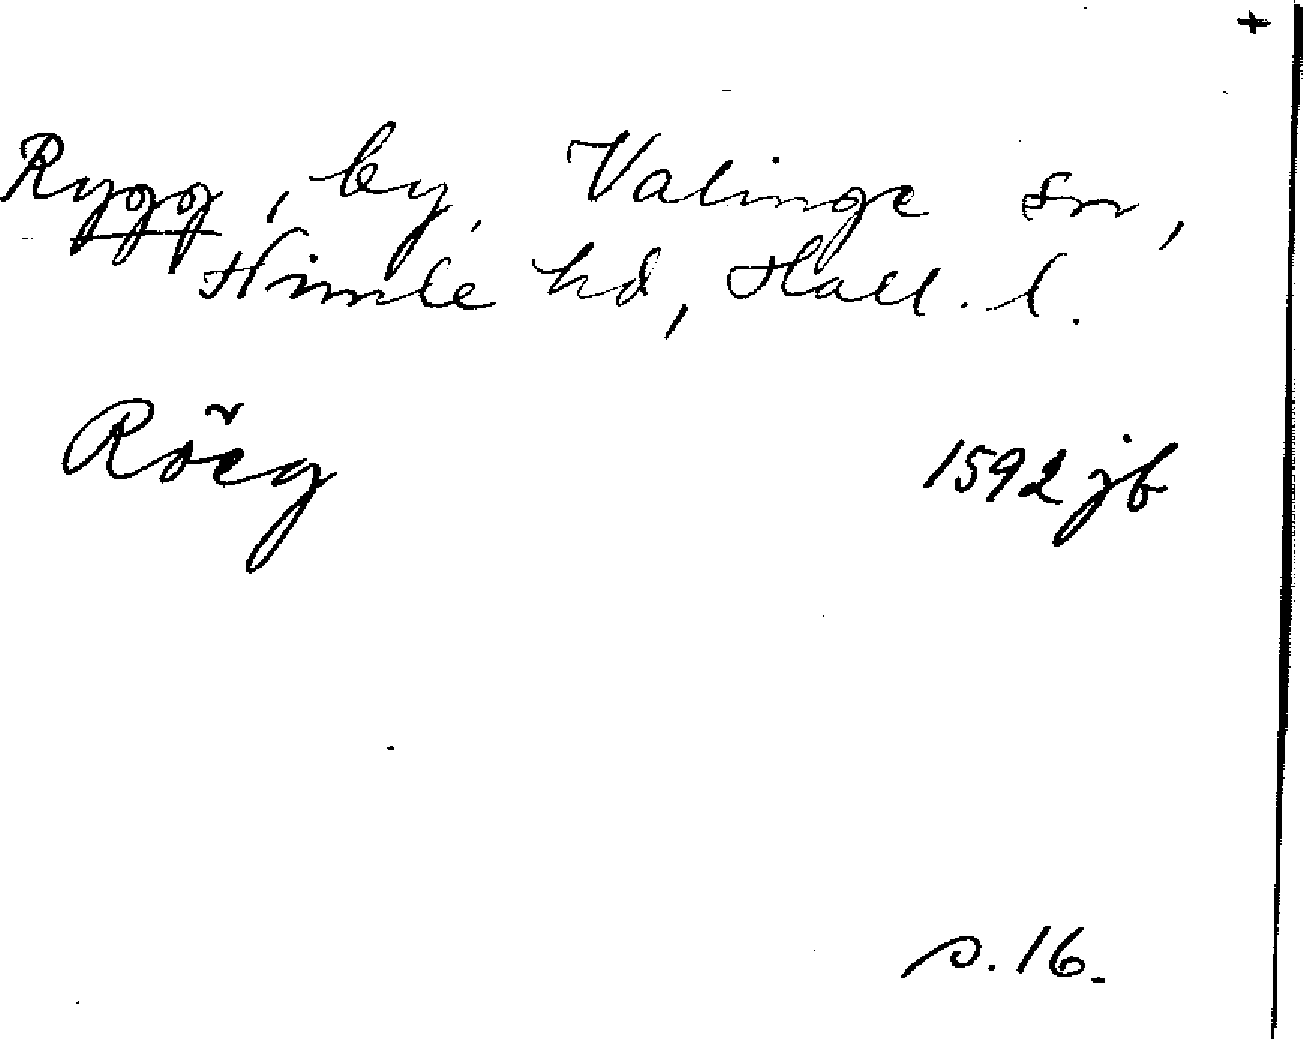 +
Rygg, by, Valinge sn,
Himle hd, Hall. l.
Röeg 1592 jb
s. 16.